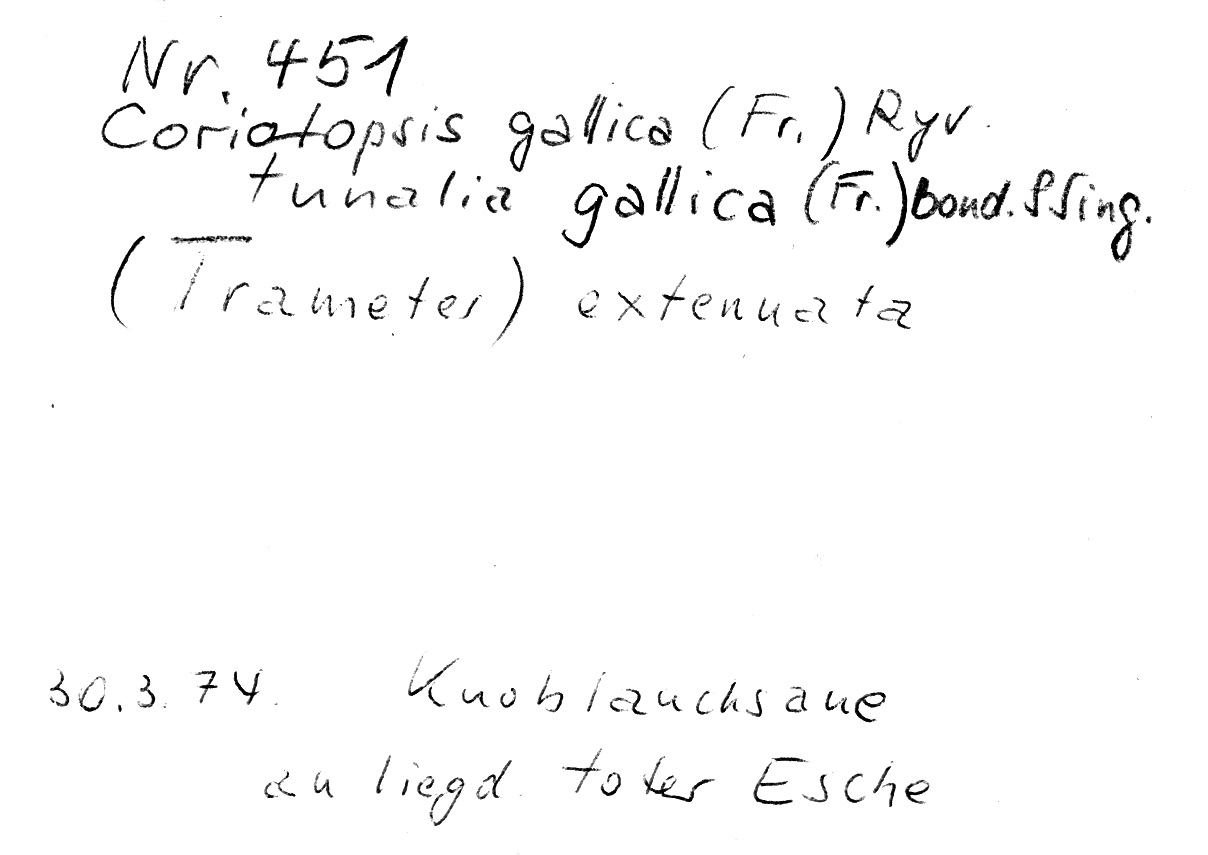 Nr. 451
Coriotopsis gallica (Fr.) Ryv.
tunalia gallica (Fr.) bond. & Sing.
(Trameter) extenuata
30.3.74. Knoblauchsaue
an liegd. toter Esche